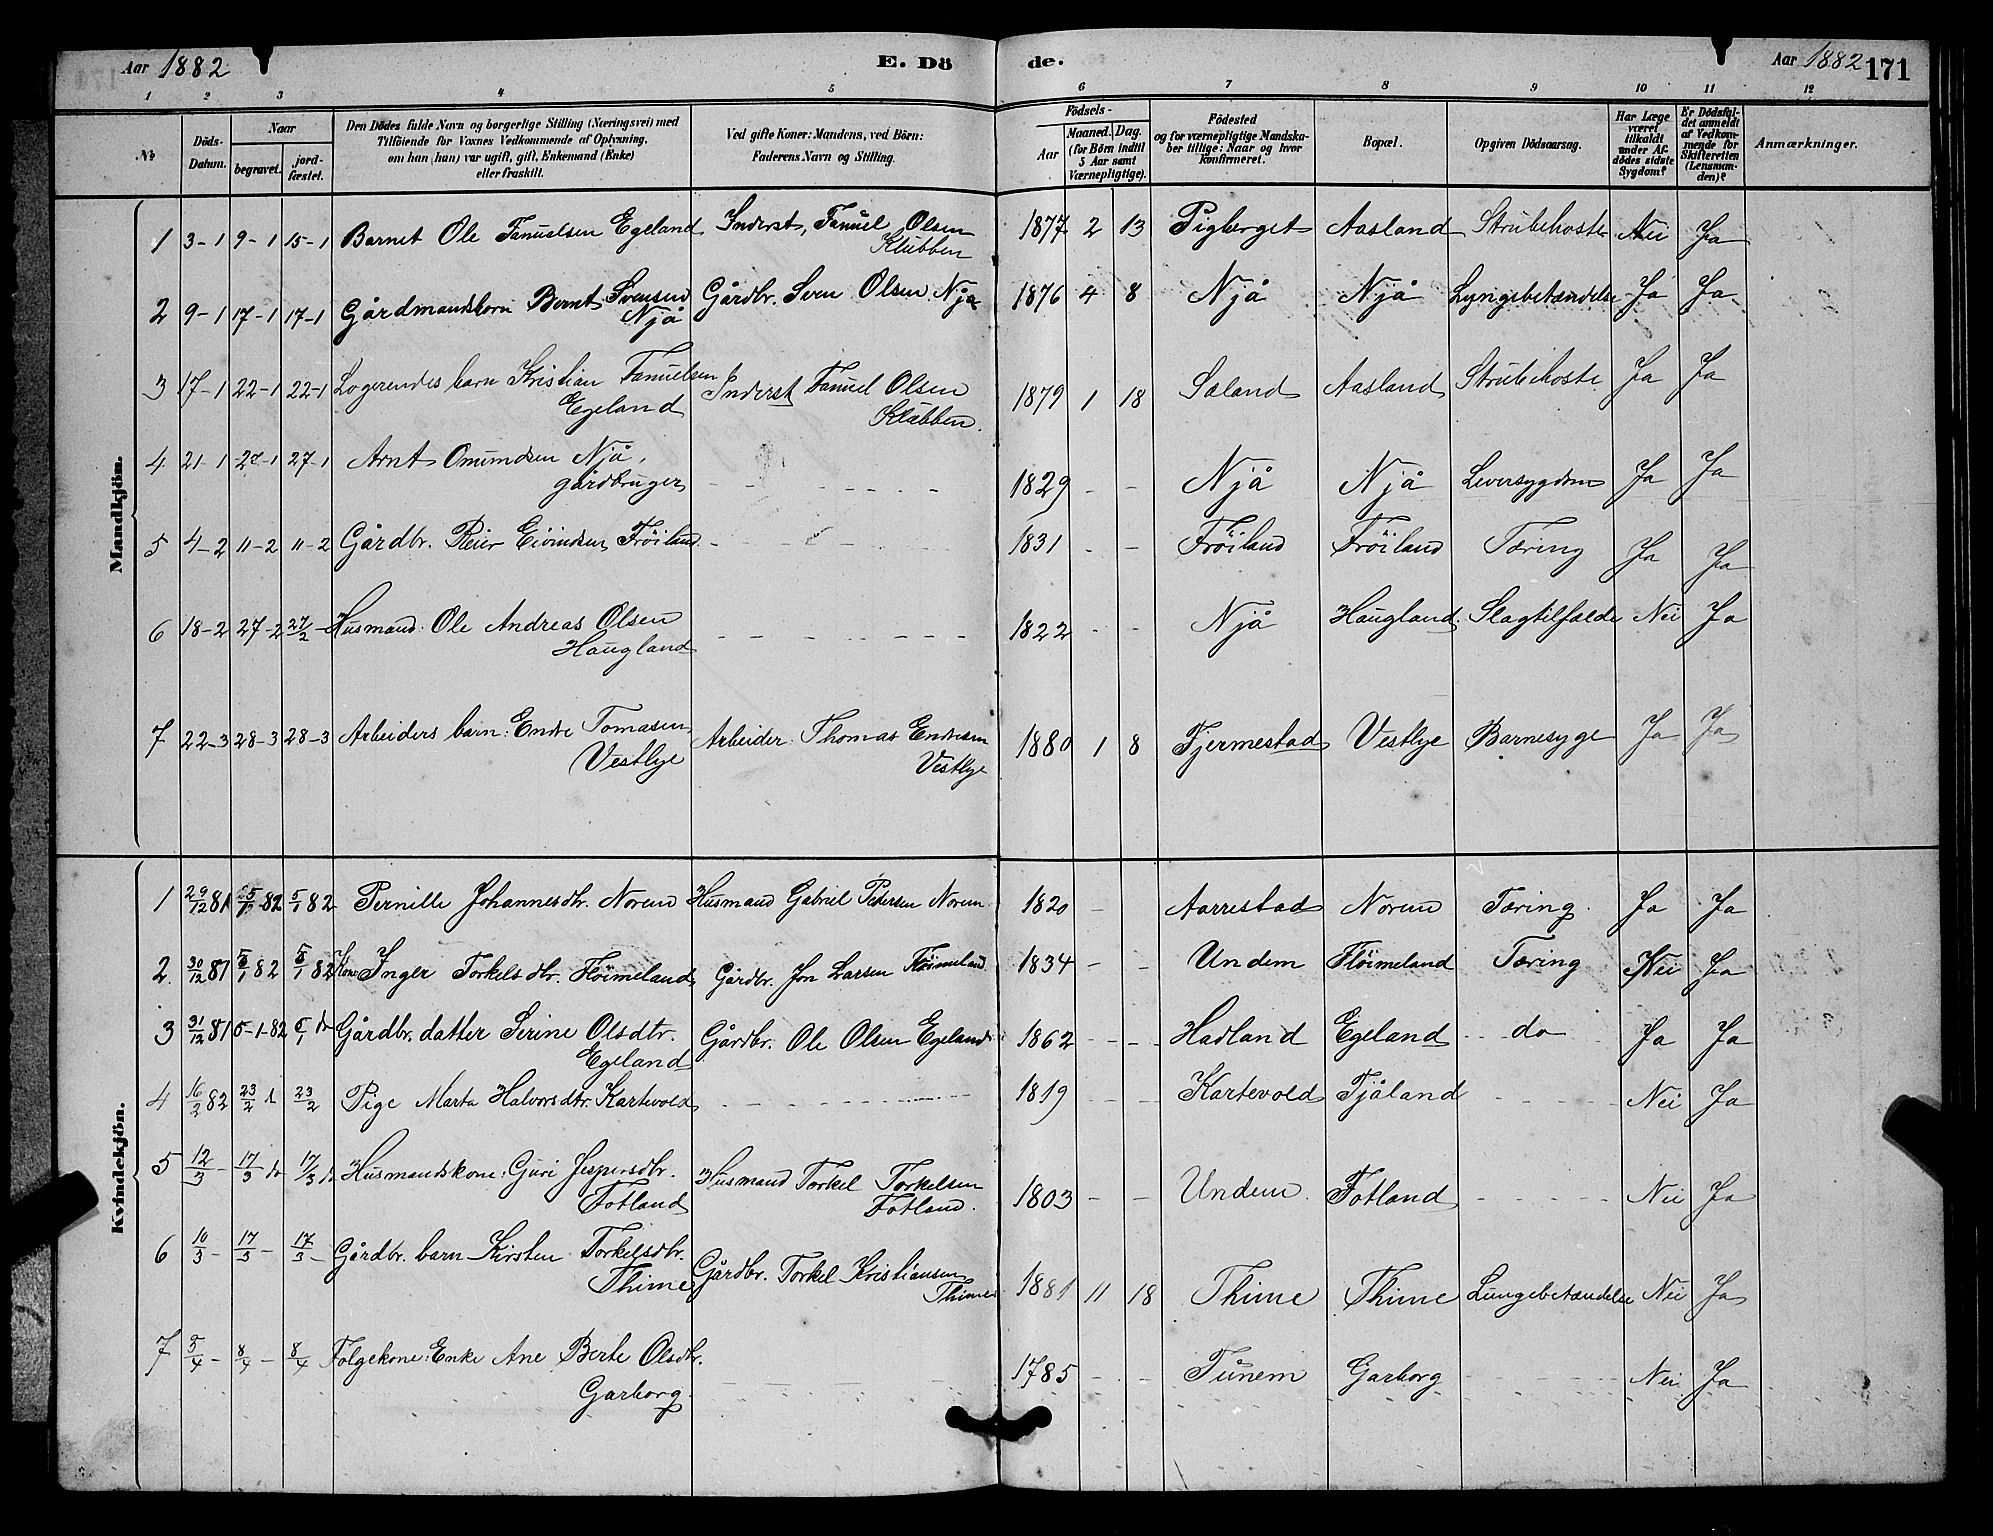 Aar 1882 E. Dö de. Aar 1882 171
1 2 3 4 5 6 7 8 9 10 11 12
№ Döds-Datum. Naar begravet. jordfæstet. Den Dödes fulde Navn og borgerlige Stilling (Næringsvei) med Tilföiende for Voxnes Vedkommende af Oplysning, om han (hun) var ugift, gift, Enkemand (Enke) eller fraskilt. Ved gifte Koner: Mandens, ved Börn: Faderens Navn og Stilling. Födsels- Aar Maaned. Dag. (for Börn indtil 5 Aar samt Værnepligtige). Födested og for værnepligtige Mandskaber tillige: Naar og hvor konfirmeret. Bopæl. Opgiven Dödsaarsag. Har Læge været tilkaldt under Afdödes sidste Sygdom? Er Dödsfaldet anmeldt af Vedkommende for Skifteretten (Lensmanden)? Anmærkninger.
Mandkjön.
1 3-1 9-1 15-1 Barnet Ole Fanuelsen Egeland Inderst, Fanuel Olsen Klubben 1877 2 13 Pigberget Aasland Strubehoste Nei Ja
2 9-1 17-1 17-1 Gårdmandsbarn Bernt Svensen Njå Gårdbr. Sven Olsen Njå 1876 4 8 Njå Njå Lyngebetændelse Ja Ja
3 17-1 22-1 22-1 Logerendes barn Kristian Fanuelsen Egeland Inderst Fanuel Olsen Klubben. 1879 1 18 Saland Aasland Strubehoste Ja Ja
4 21-1 27-1 27-1 Arnt Omundsen Njå, gårdbruger - - - 1829 - - Njå Njå Leversygdom Ja Ja
5 4-2 11-2 11-2 Gårdbr. Reier Eivindsen Fröiland - - - 1831 - - Fröiland Fröiland Tæring Ja Ja
6 18-2 27-2 27/2 - Husmand: Ole Andreas Olsen Haugland - - - 1822 - - Njå Haugland. Slagtilfælde Nei Ja
7 22-3 28-3 28-3 Arbeiders barn: Endre Tomasen Vestlye Arbeider: Thomas Endresen Vestlye 1880 1 8 Tjermestad Vestlye Barnesyge Ja Ja
Kvindekjön.
1 29/12 81 5/1 82 5/1 82 Pernille Johannesdtr. Norem Husmand Gabriel Pedersen Norem 1820 - Aarrestad Norem Tæring. Ja Ja
2. 30/12 81 5/1 82 5/1 82 Kone Inger Torkelsdtr. Flöimeland Gårdbr. Jon Larsen Flöimeland 1834 - - Undem Flöimeland Tæring Nei Ja
3 31/12 81 5-1-82 5/1 do Gårdbr. datter Serine Olsdtr. Egeland Gårdbr. Ole Olsen Egeland 1862 - - Hadland Egeland do Ja Ja
4 16/2 82 23/2 23/2 Pige Marta Halvorsdtr. Kartevold - - - 1819 Kartevold Tjåland - - - Nei Ja
5 12/3 - 17/3 do 17/3 do Husmandskone: Guri Jespersdtr. Fotland Husmand Torkel Torkelsen Fotland. 1803 - - Undem. Fotland - - - Nei Ja
6 10/3 - 17/3 - 17/3 - Gårdbr. barn Kirsten Torkelsdtr. Thime Gårdbr. Torkel Kristiansen Thime 1881 11 18 Thime Thime Lungebetændelse Nei Ja
7 5/4 - 8/4 - 8/4 Folgekone: Enke Ane Berte Olsdtr. Garborg. - - - 1785 - - Tunem Garborg - - - Nei Ja